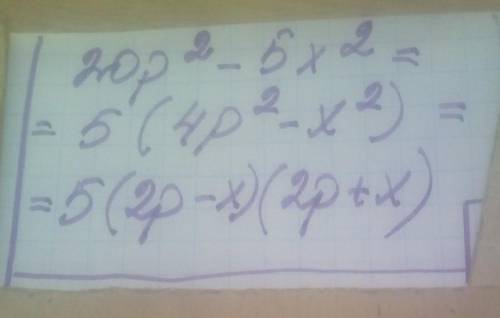 20p² - 5x² =
= 5(4p² - x²) =
= 5(2p - x)(2p + x)